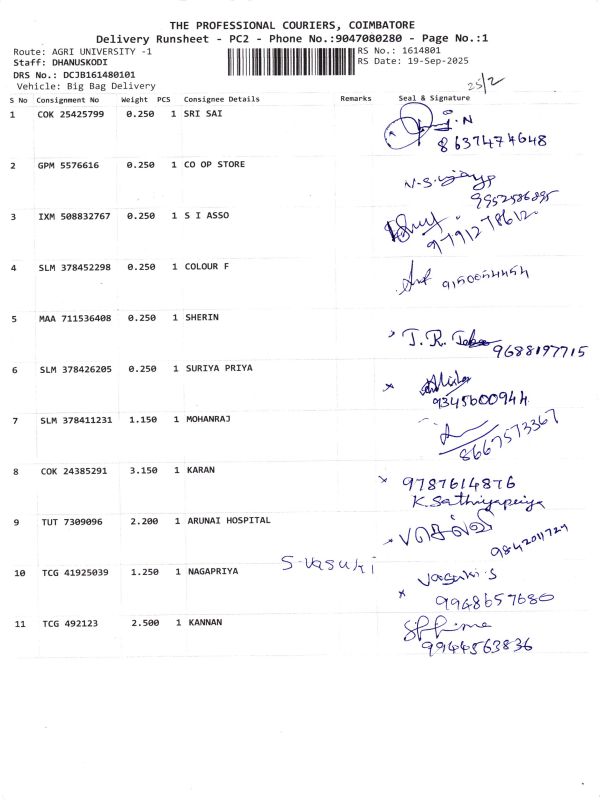 THE PROFESSIONAL COURIERS, COIMBATORE
Delivery Runsheet - PC2 - Phone No.:9047080280 - Page No.:1
Route: AGRI UNIVERSITY -1
RS No.: 1614801
Staff: DHANUSKODI
RS Date: 19-Sep-2025
DRS No.: DCJB161480101
Vehicle: Big Bag Delivery
25/2
S No Consignment No Weight PCS Consignee Details Remarks Seal & Signature
1 COK 25425799 0.250 1 SRI SAI
8637474648
2 GPM 5576616 0.250 1 CO OP STORE
9952586895
3 IXM 508832767 0.250 1 S I ASSO
9791278612
4 SLM 378452298 0.250 1 COLOUR F
9150054454
5 MAA 711536408 0.250 1 SHERIN
J. R.
9688197715
6 SLM 378426205 0.250 1 SURIYA PRIYA
9345600944
7 SLM 378411231 1.150 1 MOHANRAJ
8667573367
8 COK 24385291 3.150 1 KARAN
9787614876
K. Sathiyapriya
9 TUT 7309096 2.200 1 ARUNAI HOSPITAL
செல்வி
9842011729
S. Vasuki
10 TCG 41925039 1.250 1 NAGAPRIYA
Vasuki. S
9948657680
11 TCG 492123 2.500 1 KANNAN
9944563836